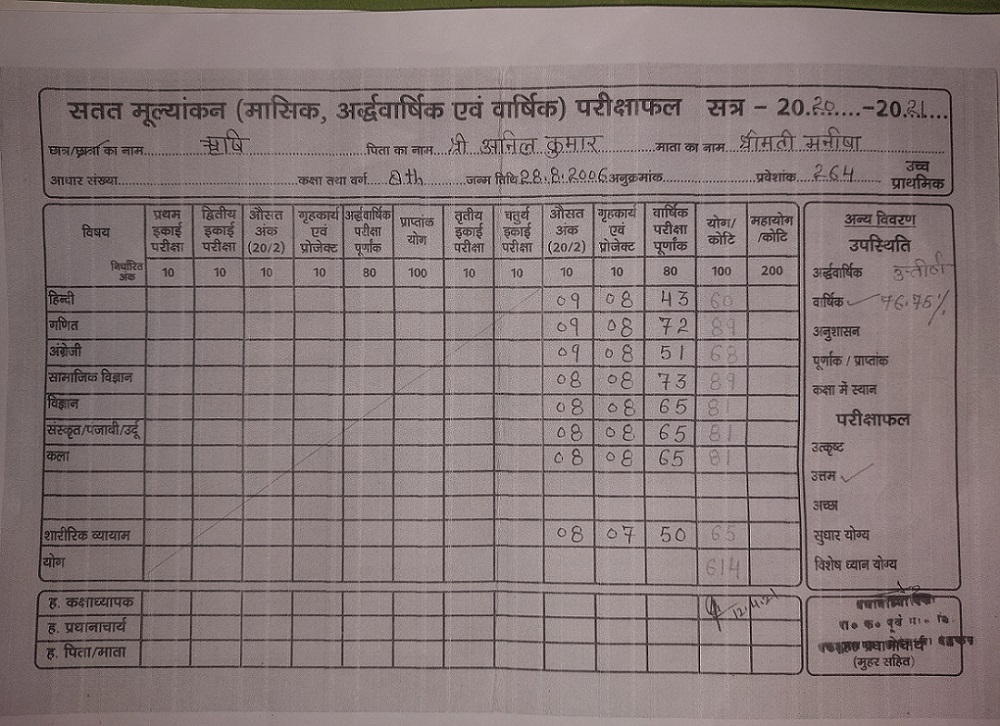 सतत मूल्यांकन (मासिक, अर्द्धवार्षिक एवं वार्षिक) परीक्षाफल सत्र – 20.20....–20.21....
छात्र/छात्रा का नाम ऋषि पिता का नाम श्री अनिल कुमार माता का नाम श्रीमती मनीषा
आधार संख्या कक्षा तथा वर्ग 8th जन्म तिथि 28.8.2006 अनुक्रमांक प्रवेशांक 264 उच्च प्राथमिक
विषय प्रथम इकाई परीक्षा द्वितीय इकाई परीक्षा औसत अंक (20/2) गृहकार्य एवं प्रोजेक्ट अर्द्धवार्षिक परीक्षा पूर्णांक प्राप्तांक योग तृतीय इकाई परीक्षा चतुर्थ इकाई परीक्षा औसत अंक (20/2) गृहकार्य एवं प्रोजेक्ट वार्षिक परीक्षा पूर्णांक योग/कोटि महायोग/कोटि
निर्धारित अंक 10 10 10 10 80 100 10 10 10 10 80 100 200
हिन्दी 09 08 43 60
गणित 09 08 72 89
अंग्रेजी 09 08 51 68
सामाजिक विज्ञान 08 08 73 89
विज्ञान 08 08 65 81
संस्कृत/पंजाबी/उर्दू 08 08 65 81
कला 08 08 65 81
शारीरिक व्यायाम 08 07 50 65
योग 614
अन्य विवरण
उपस्थिति
अर्द्धवार्षिक उत्तीर्ण
वार्षिक ✓ 76.75%
अनुशासन
पूर्णांक / प्राप्तांक
कक्षा में स्थान
परीक्षाफल
उत्कृष्ट
उत्तम ✓
अच्छा
सुधार योग्य
विशेष ध्यान योग्य
ह. कक्षाध्यापक 12.4.21
ह. प्रधानाचार्य
ह. पिता/माता
प्रधानाचार्य
(मुहर सहित)